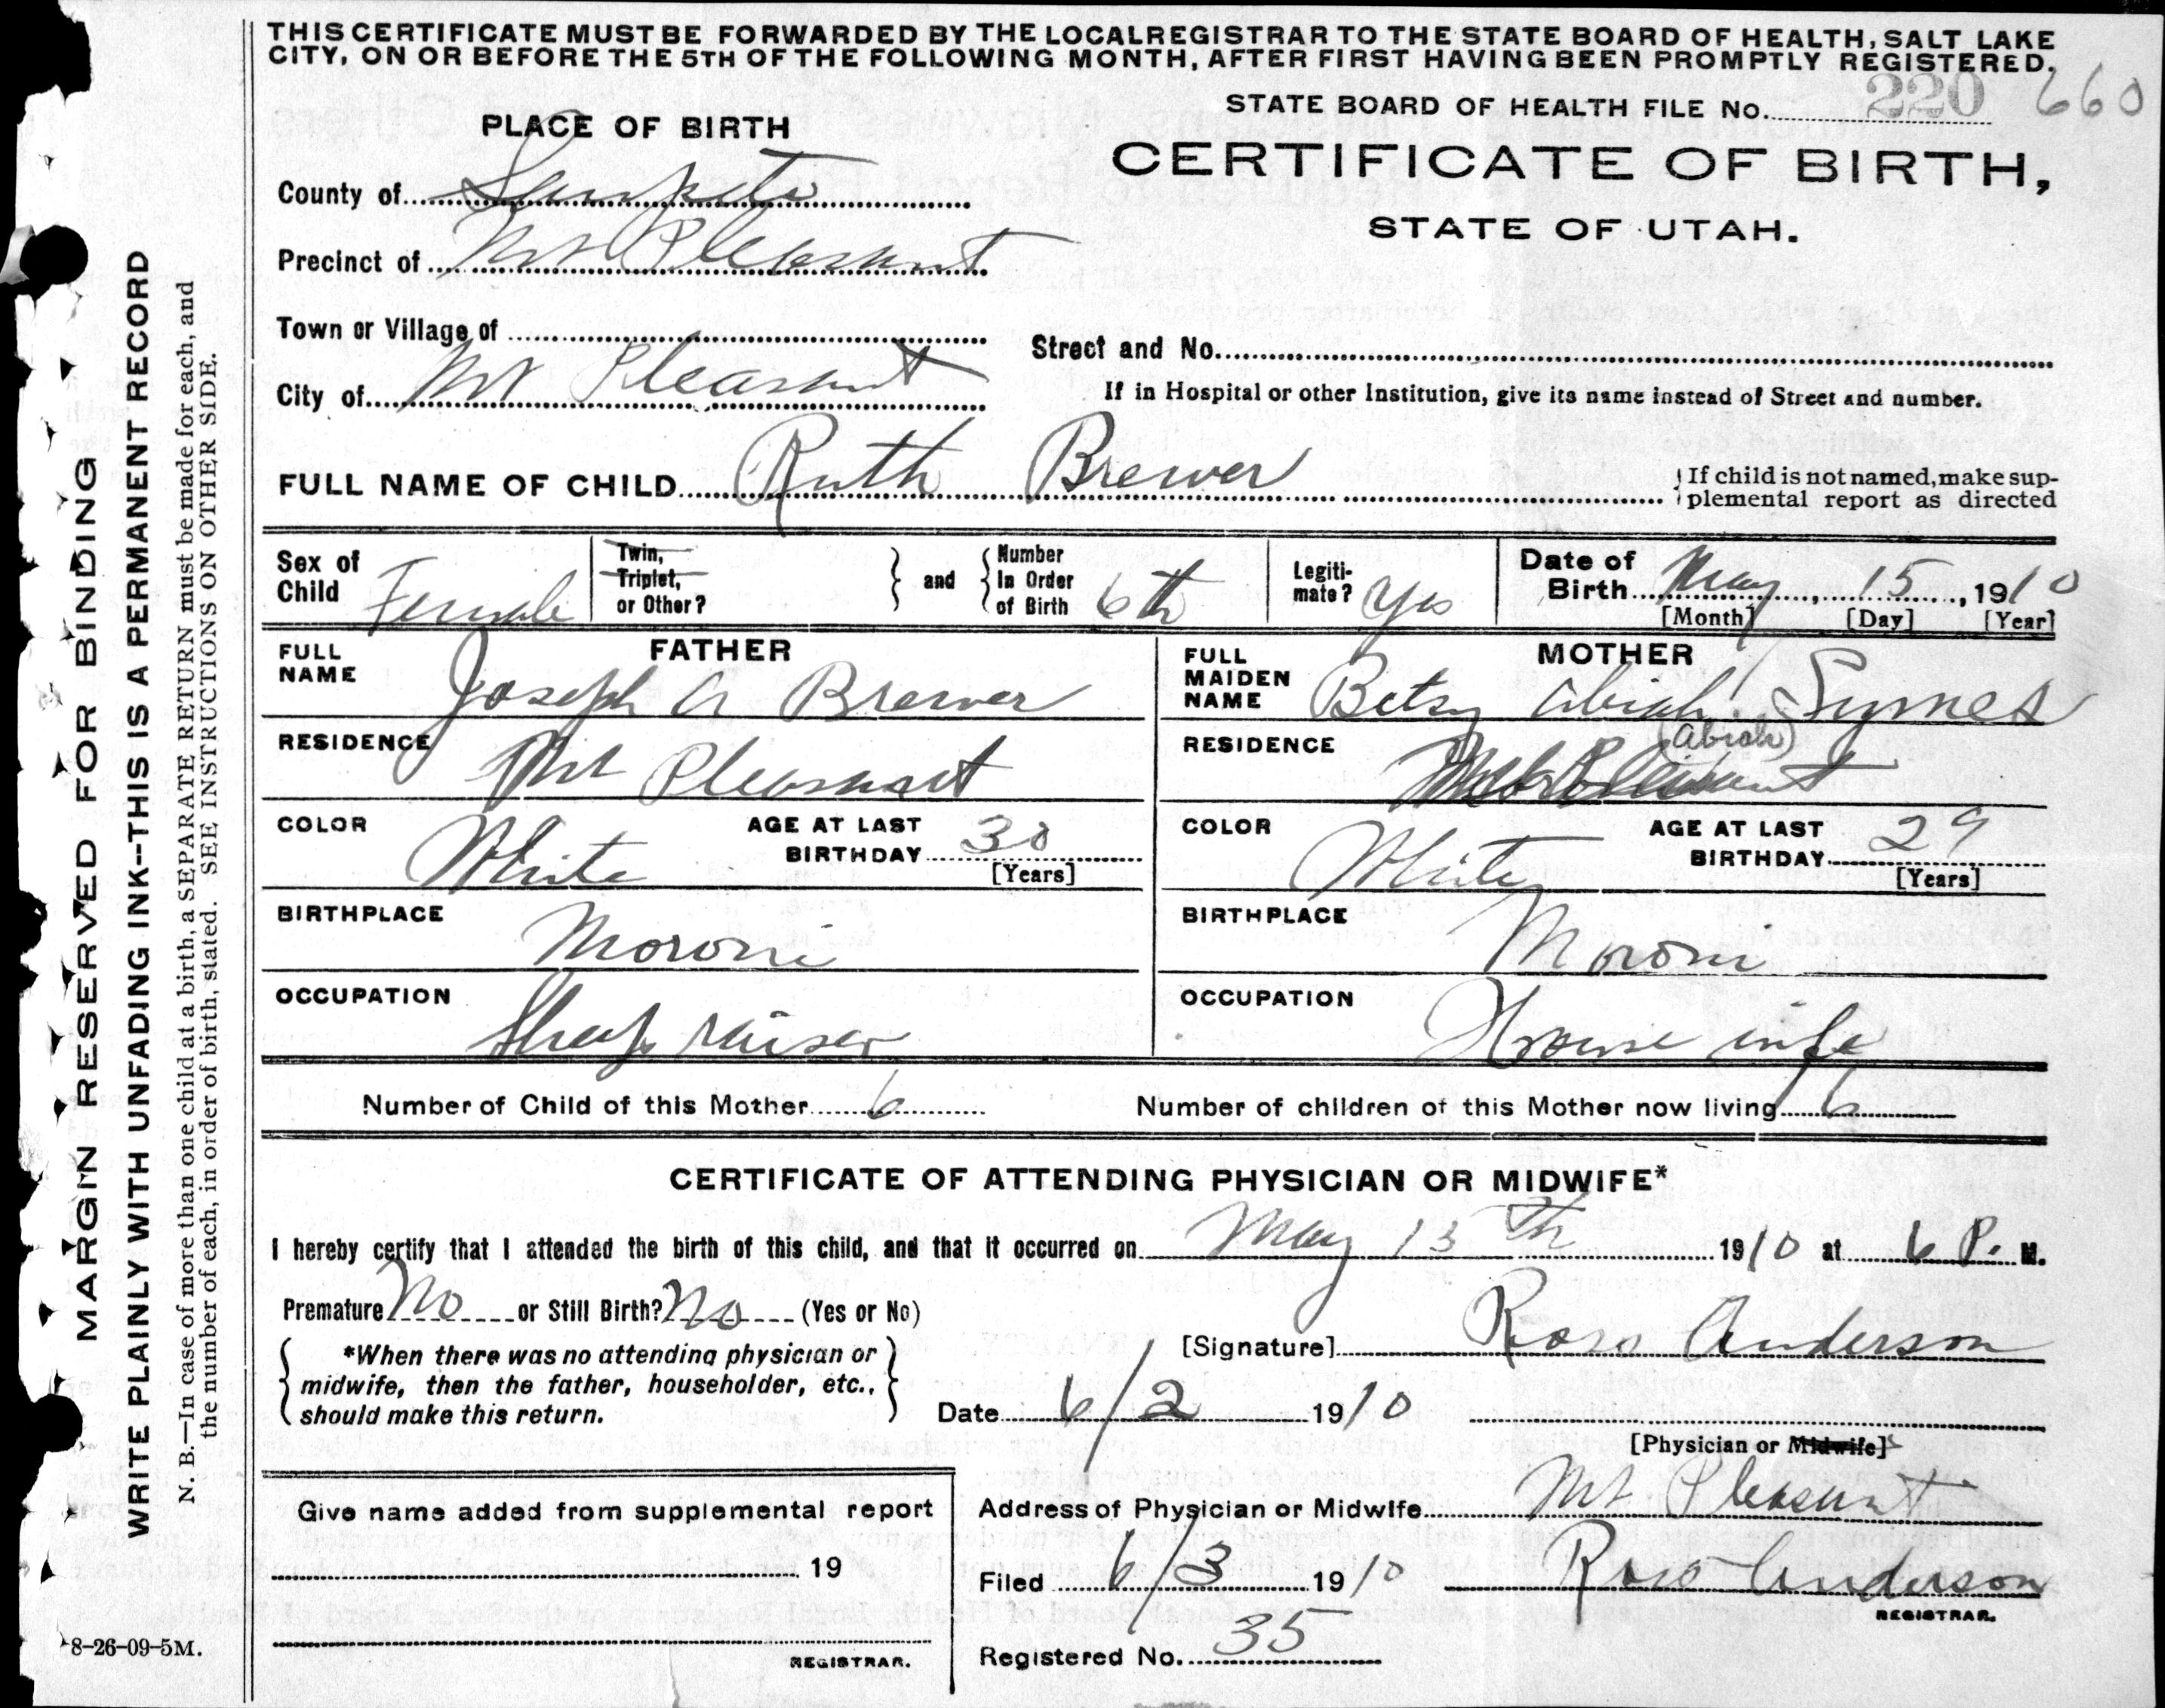 THIS CERTIFICATE MUST BE FORWARDED BY THE LOCAL REGISTRAR TO THE STATE BOARD OF HEALTH, SALT LAKE
CITY, ON OR BEFORE THE 5TH OF THE FOLLOWING MONTH, AFTER FIRST HAVING BEEN PROMPTLY REGISTERED.
STATE BOARD OF HEALTH FILE No. 220 660
PLACE OF BIRTH
CERTIFICATE OF BIRTH,
STATE OF UTAH.
County of Sanpete
Precinct of Mt Pleasant
Town or Village of
Street and No.
City of Mt Pleasant
If in Hospital or other Institution, give its name instead of Street and number.
FULL NAME OF CHILD Ruth Brewer
If child is not named, make sup-
plemental report as directed
Sex of Child Female
Twin, Triplet, or Other?
and
Number In Order of Birth 6th
Legiti-mate? Yes
Date of Birth May 15, 1910
[Month] [Day] [Year]
FATHER
FULL NAME Joseph A Brewer
RESIDENCE Mt Pleasant
COLOR White
AGE AT LAST BIRTHDAY 30
[Years]
BIRTHPLACE Moroni
OCCUPATION Sheep raiser
MOTHER
FULL MAIDEN NAME Betsy Abiah Symes
(Abiah)
RESIDENCE Mt Pleasant
COLOR White
AGE AT LAST BIRTHDAY 29
[Years]
BIRTHPLACE Moroni
OCCUPATION House wife
Number of Child of this Mother 6
Number of children of this Mother now living 6
CERTIFICATE OF ATTENDING PHYSICIAN OR MIDWIFE*
I hereby certify that I attended the birth of this child, and that it occurred on May 15th 1910 at 6 P. M.
Premature No or Still Birth? No (Yes or No)
*When there was no attending physician or
midwife, then the father, householder, etc.,
should make this return.
[Signature] Anderson
Date 6/2 1910
[Physician or Midwife]
Give name added from supplemental report
19
REGISTRAR.
Address of Physician or Midwife Mt Pleasant
Filed 6/3 1910 Anderson
REGISTRAR.
Registered No. 35
MARGIN RESERVED FOR BINDING
WRITE PLAINLY WITH UNFADING INK--THIS IS A PERMANENT RECORD
N. B.—In case of more than one child at a birth, a SEPARATE RETURN must be made for each, and
the number of each, in order of birth, stated. SEE INSTRUCTIONS ON OTHER SIDE.
8-26-09-5M.